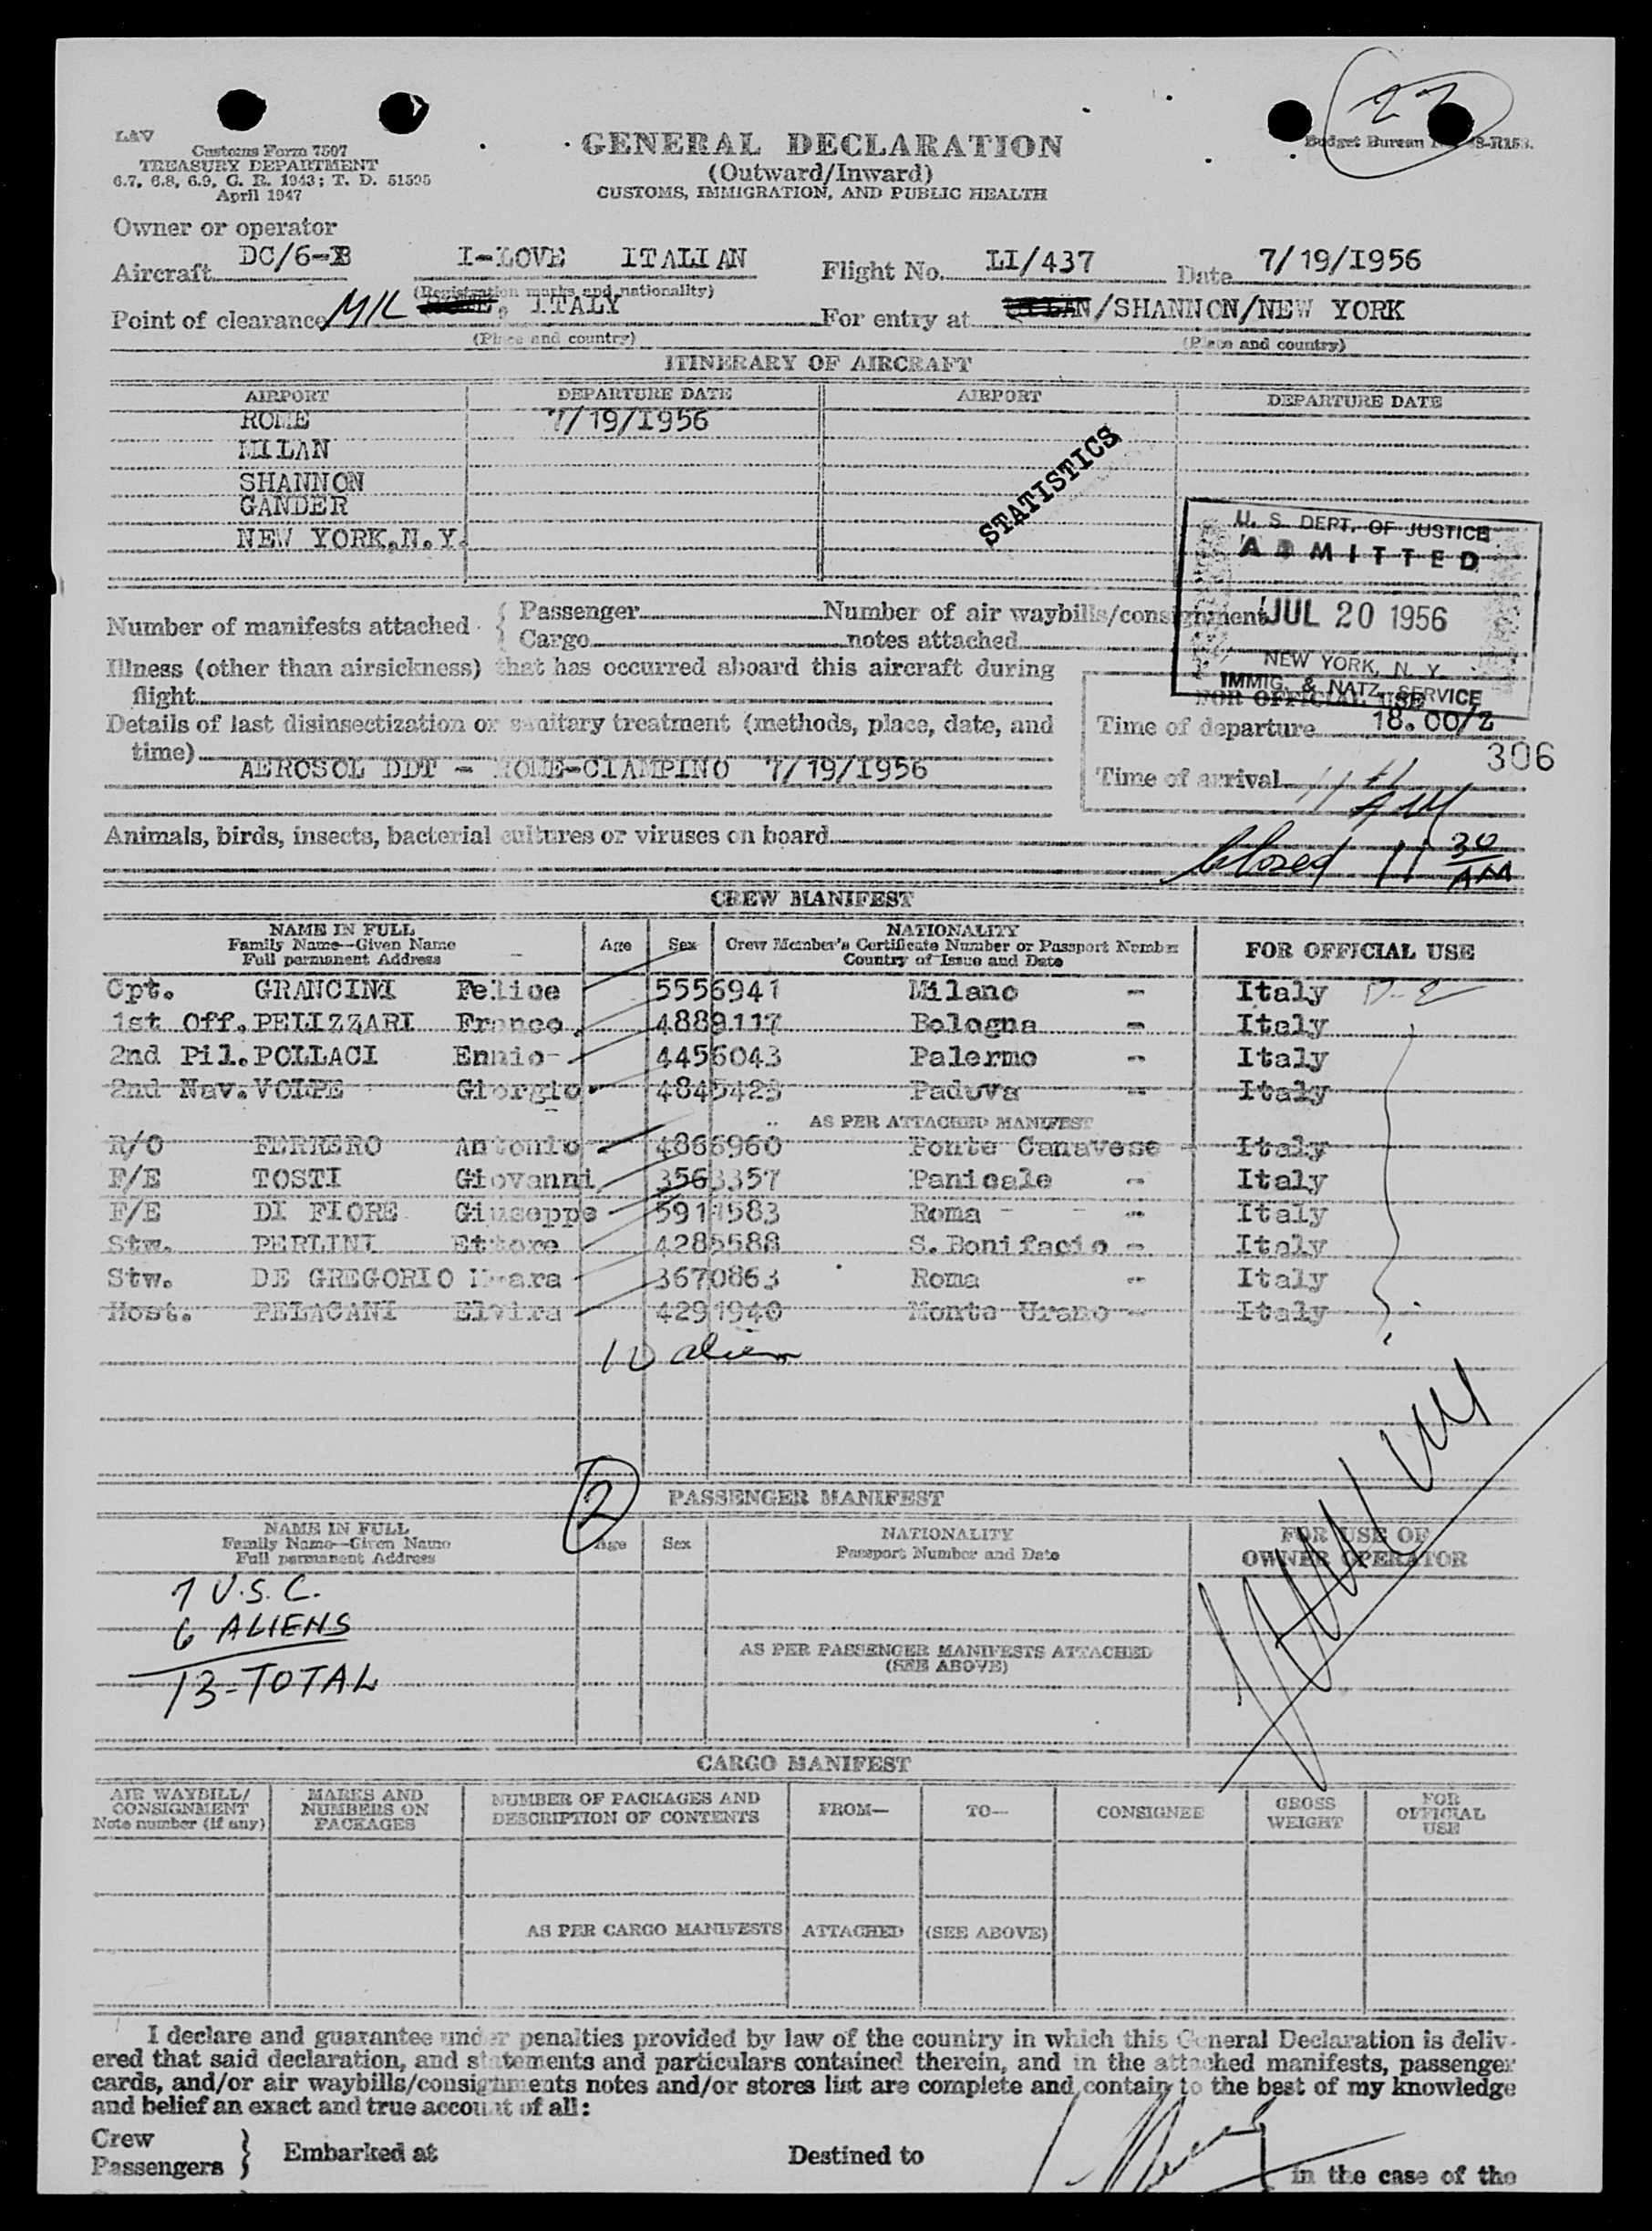 23
LAV
Customs Form 7507
TREASURY DEPARTMENT
6.7, 6.8, 6.9, C. R. 1943; T. D. 51595
April 1947
GENERAL DECLARATION
(Outward/Inward)
CUSTOMS, IMMIGRATION, AND PUBLIC HEALTH
Budget Bureau
Owner or operator
Aircraft DC/6-B I-LOVE ITALIAN Flight No. LI/437 Date 7/19/1956
(Registration marks and nationality)
Point of clearance MIL , ITALY For entry at /SHANNON/NEW YORK
(Place and country) (Place and country)
ITINERARY OF AIRCRAFT
AIRPORT DEPARTURE DATE AIRPORT DEPARTURE DATE
ROME 7/19/1956
MILAN
SHANNON
GANDER
NEW YORK,N.Y.
STATISTICS
U. S. DEPT. OF JUSTICE
ADMITTED
JUL 20 1956
NEW YORK, N. Y.
IMMIG. & NATZ. SERVICE
Number of manifests attached { Passenger Number of air waybills/consignment
Cargo notes attached
Illness (other than airsickness) that has occurred aboard this aircraft during
flight
Details of last disinsectization or sanitary treatment (methods, place, date, and
time)
AEROSOL DDT - ROME-CIAMPINO 7/19/1956
FOR OFFICIAL USE
Time of departure 18.00/Z
306
Time of arrival 11 AM
Animals, birds, insects, bacterial cultures or viruses on board
Closed 11 30 AM
CREW MANIFEST
NAME IN FULL
Family Name--Given Name
Full permanent Address
Age Sex
NATIONALITY
Crew Member's Certificate Number or Passport Number
Country of Issue and Date
FOR OFFICIAL USE
Cpt. GRANCINI Felice 5556941 Milano - Italy
1st Off. PELIZZARI Franco 4889117 Bologna - Italy
2nd Pil. POLLACI Ennio 4456043 Palermo - Italy
2nd Nav. VOLPE Giorgio 4845423 Padova - Italy
AS PER ATTACHED MANIFEST
R/O FERRERO Antonio 4866960 Ponte Canavese - Italy
F/E TOSTI Giovanni 3563357 Panicale - Italy
F/E DI FIORE Giuseppe 5911583 Roma - Italy
Stw. PERLINI Ettore 4285588 S.Bonifacio - Italy
Stw. DE GREGORIO 3670863 Roma - Italy
Host. PELACANI Elvira 4291940 Monte Urano - Italy
10 alien
2
PASSENGER MANIFEST
NAME IN FULL
Family Name--Given Name
Full permanent Address
Age Sex
NATIONALITY
Passport Number and Date
FOR USE OF
OWNER OPERATOR
7 U.S.C.
6 ALIENS
13-TOTAL
AS PER PASSENGER MANIFESTS ATTACHED
(SEE ABOVE)
CARGO MANIFEST
AIR WAYBILL/
CONSIGNMENT
Note number (if any)
MARKS AND
NUMBERS ON
PACKAGES
NUMBER OF PACKAGES AND
DESCRIPTION OF CONTENTS
FROM— TO— CONSIGNEE
GROSS
WEIGHT
FOR
OFFICIAL
USE
AS PER CARGO MANIFESTS ATTACHED (SEE ABOVE)
I declare and guarantee under penalties provided by law of the country in which this General Declaration is deliv-
ered that said declaration, and statements and particulars contained therein, and in the attached manifests, passenger
cards, and/or air waybills/consignments notes and/or stores list are complete and contain to the best of my knowledge
and belief an exact and true account of all:
Crew
Passengers } Embarked at Destined to in the case of the